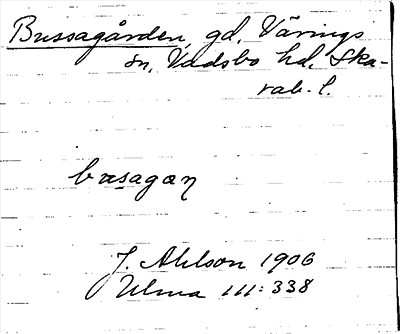 Bussagården, gd, Värings
sn, Vadsbo hd, Ska-
rab. l.
bu̱sagaɳ
J. Ahlson 1906
Ulma 111:338